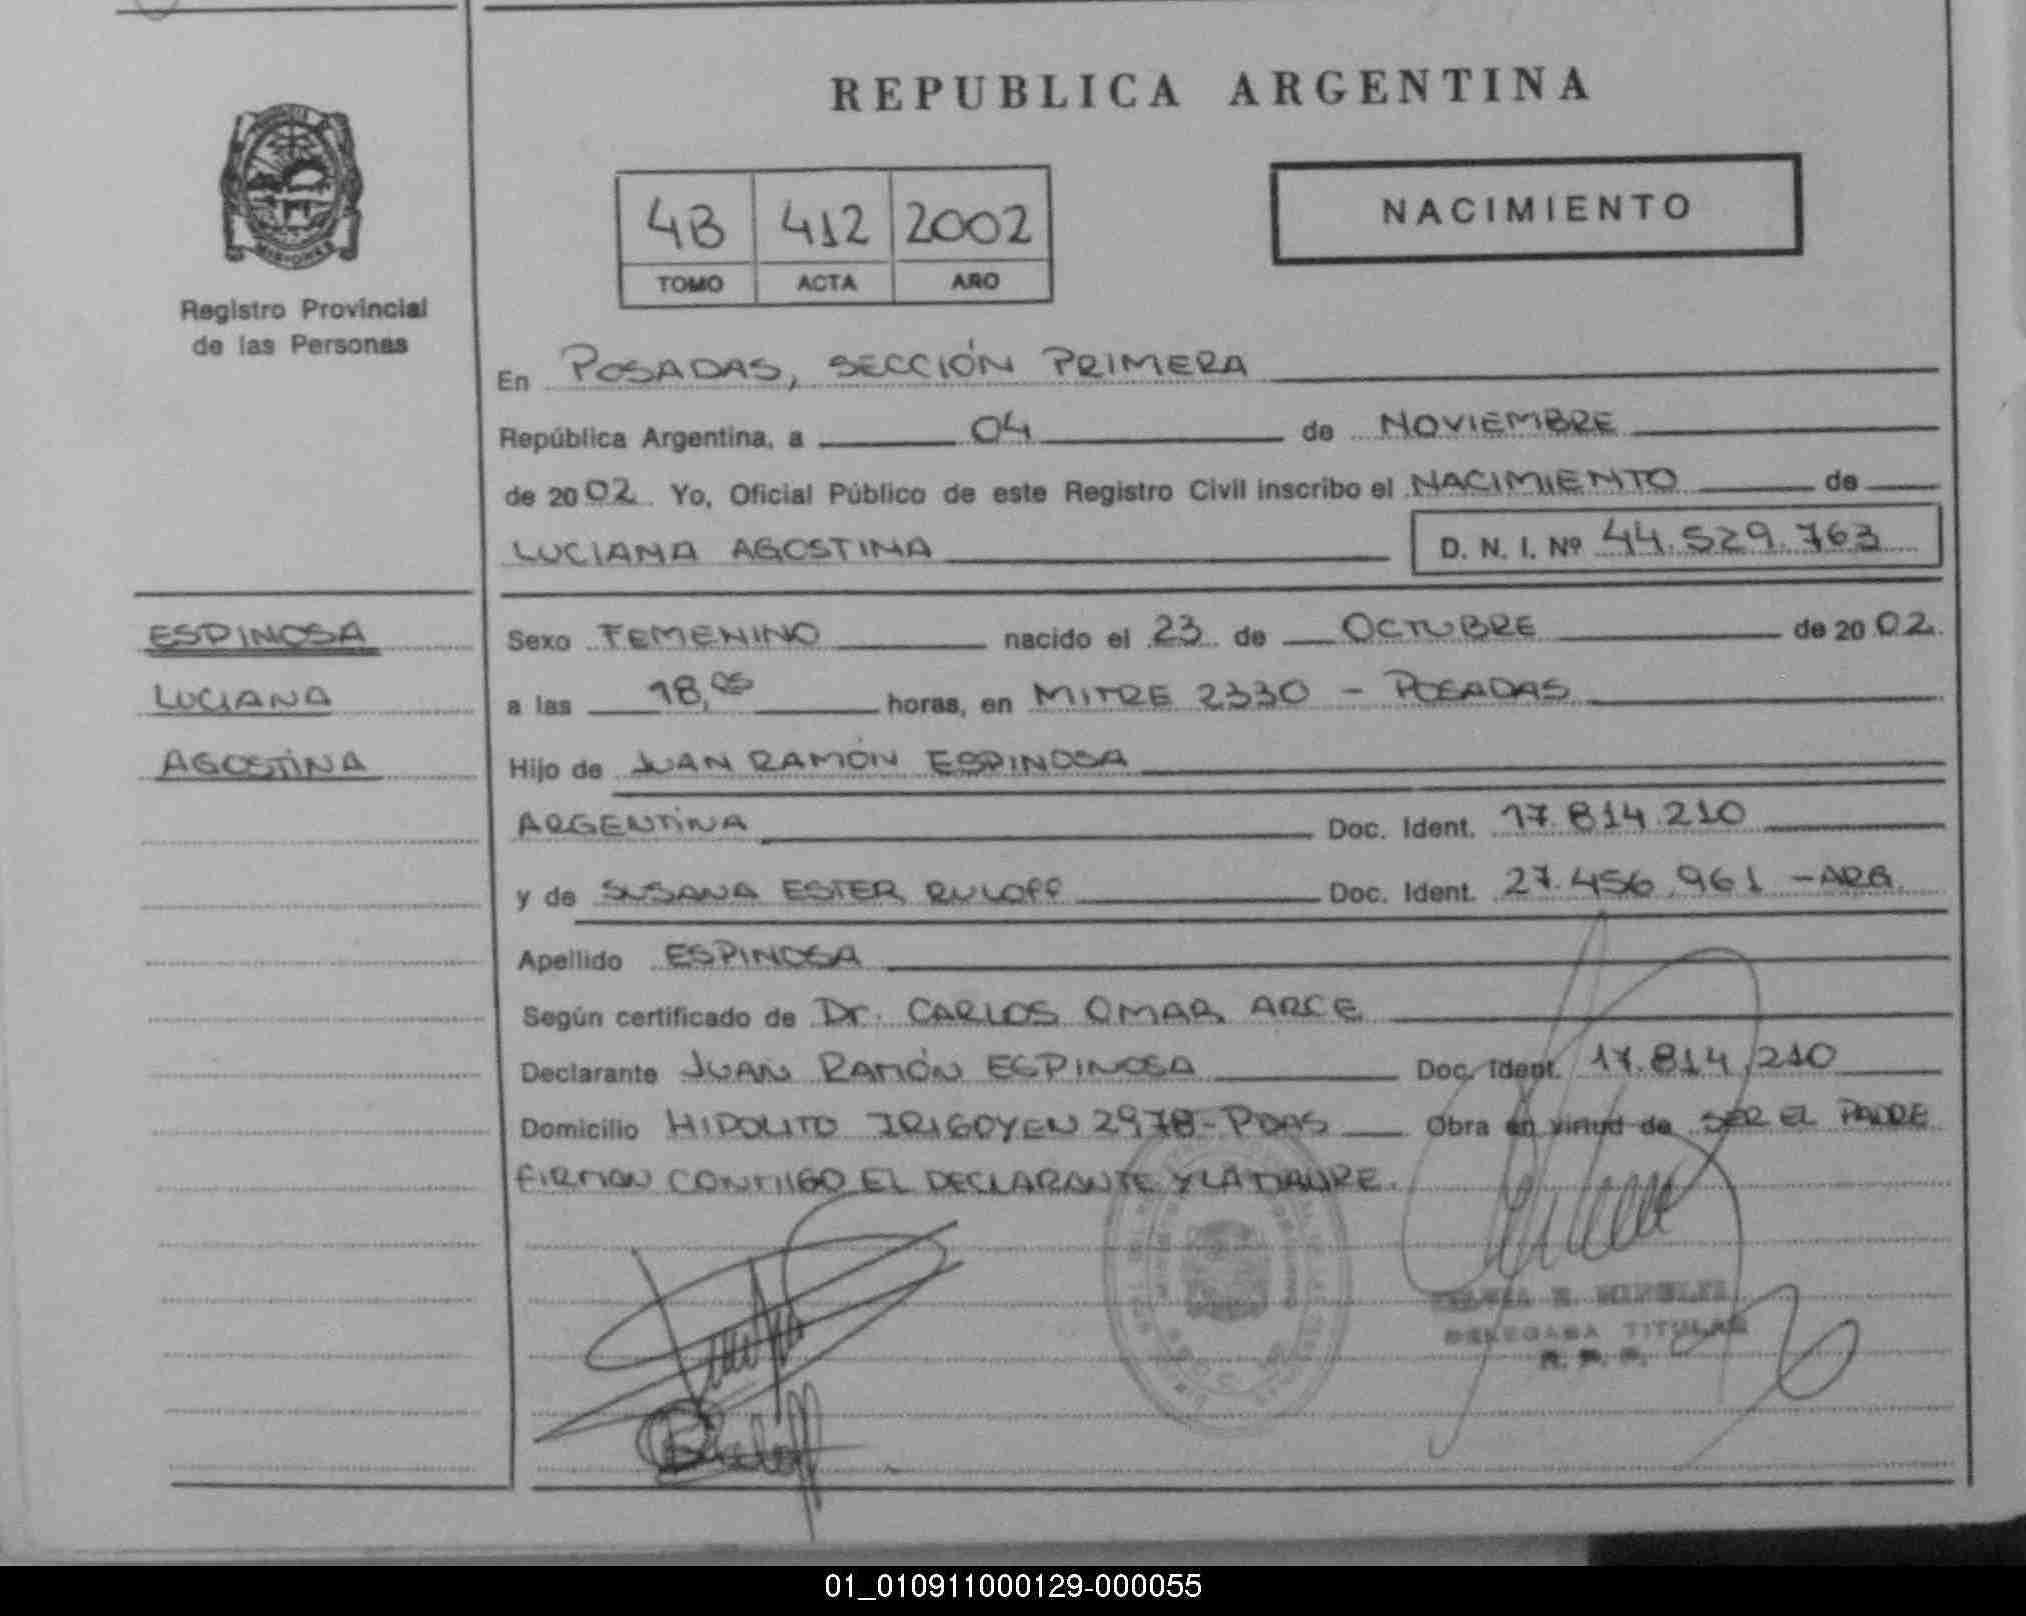 REPUBLICA ARGENTINA
NACIMIENTO
4B 412 2002
TOMO ACTA AÑO
Registro Provincial
de las Personas
En POSADAS, SECCIÓN PRIMERA
República Argentina, a 04 de NOVIEMBRE
de 2002 Yo, Oficial Público de este Registro Civil inscribo el NACIMIENTO de
LUCIANA AGOSTINA D. N. I. Nº 44.529.763
ESPINOSA
LUCIANA
AGOSTINA
Sexo FEMENINO nacido el 23 de OCTUBRE de 2002
a las 18,05 horas, en MITRE 2330 - POSADAS
Hijo de JUAN RAMÓN ESPINOSA
ARGENTINA Doc. Ident. 17.814.210
y de SUSANA ESTER RULOFF Doc. Ident. 27.456.961 - ARG.
Apellido ESPINOSA
Según certificado de Dr. CARLOS OMAR ARCE
Declarante JUAN RAMÓN ESPINOSA Doc. Ident. 17.814.210
Domicilio HIPOLITO IRIGOYEN 2978 - PDAS Obra en virtud de SER EL PADRE
FIRMAN CONMIGO EL DECLARANTE Y LA MADRE.
DELEGADA TITULAR
R. P. P.
01_010911000129-000055